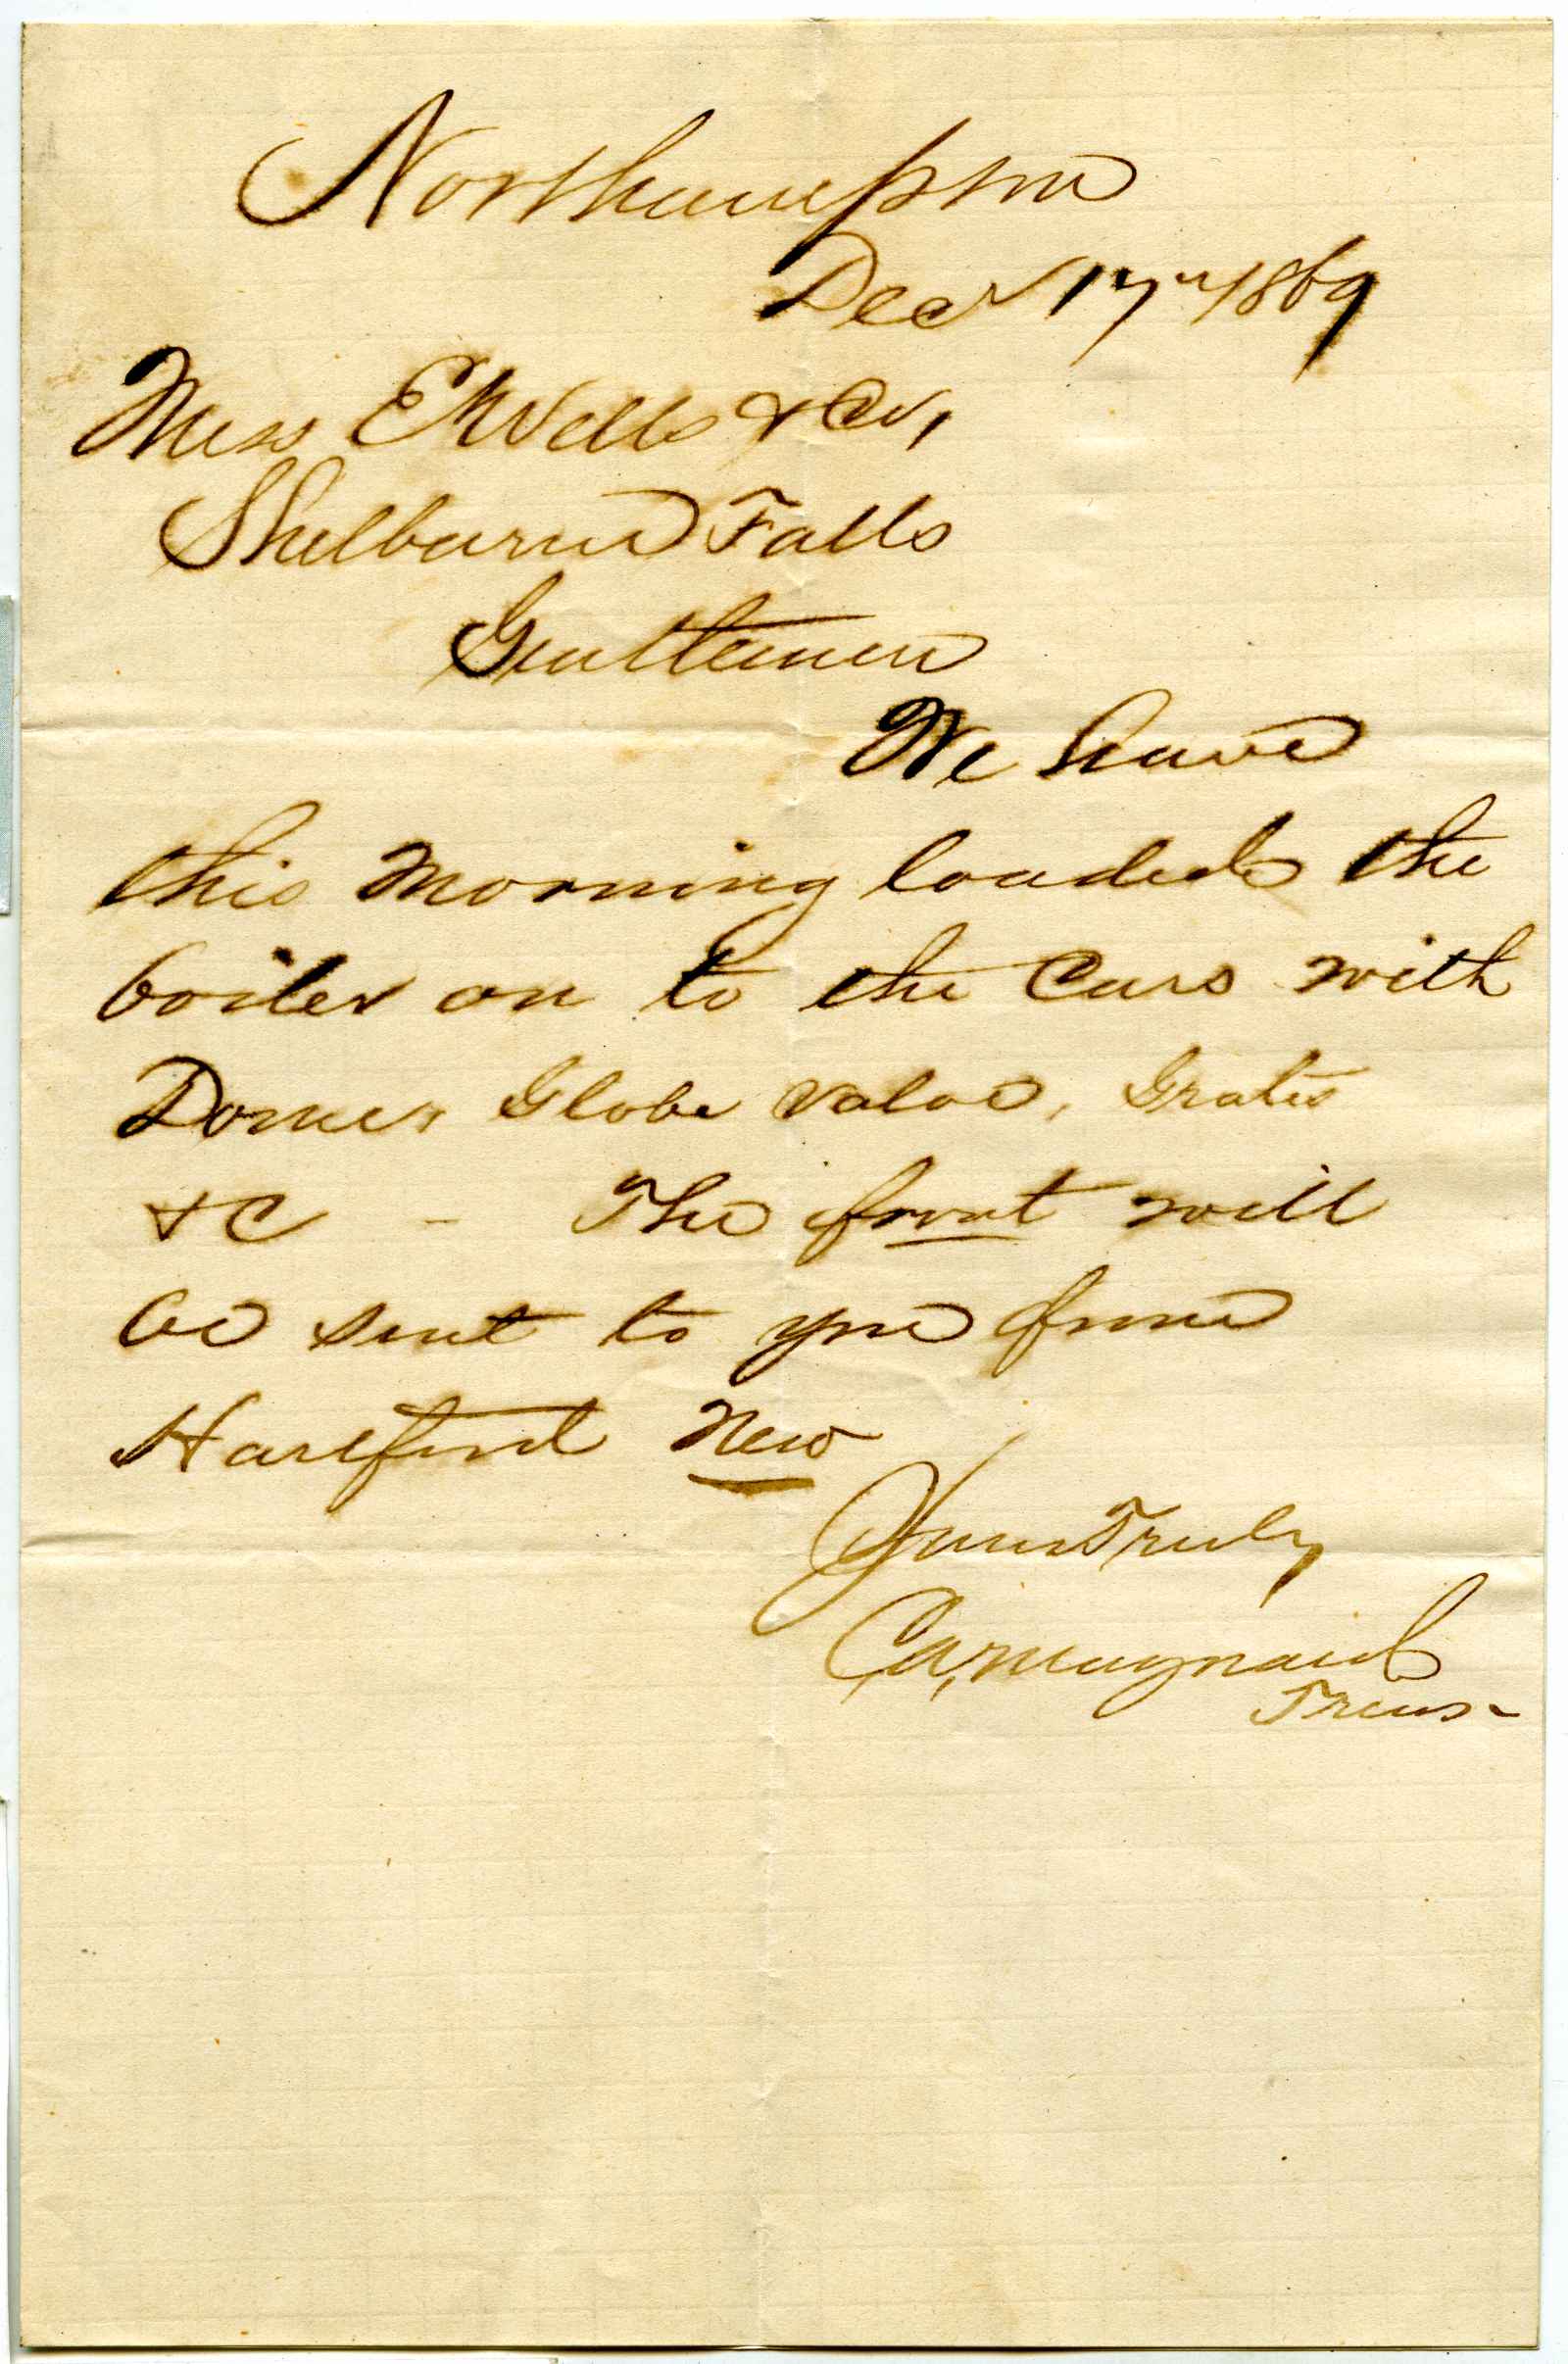 Northampton
Decr 17" 1869
Mess E Wells & Co,
Shelburne Falls
Gentlemen
We have
this morning loaded the
boiler on to the Cars with
Dome, Globe valve, Grates
&C - The front will
be sent to you from
Hartford New
Yours Truly
Maynard
Treas-